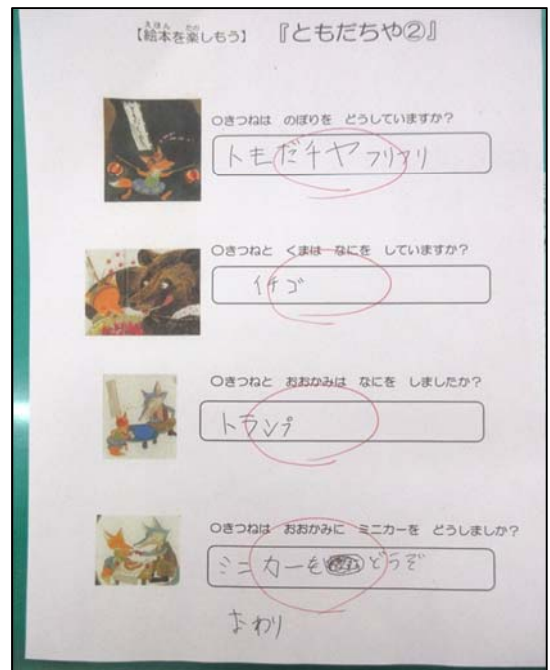 【絵本を楽しもう】 『ともだちや②』
○きつねは のぼりを どうしていますか?
トモだチヤ フリフリ
○きつねと くまは なにを していますか?
イチゴ
○きつねと おおかみは なにを しましたか?
トランプ
○きつねは おおかみに ミニカーを どうしましか?
ミニカーをどうぞ
おわり